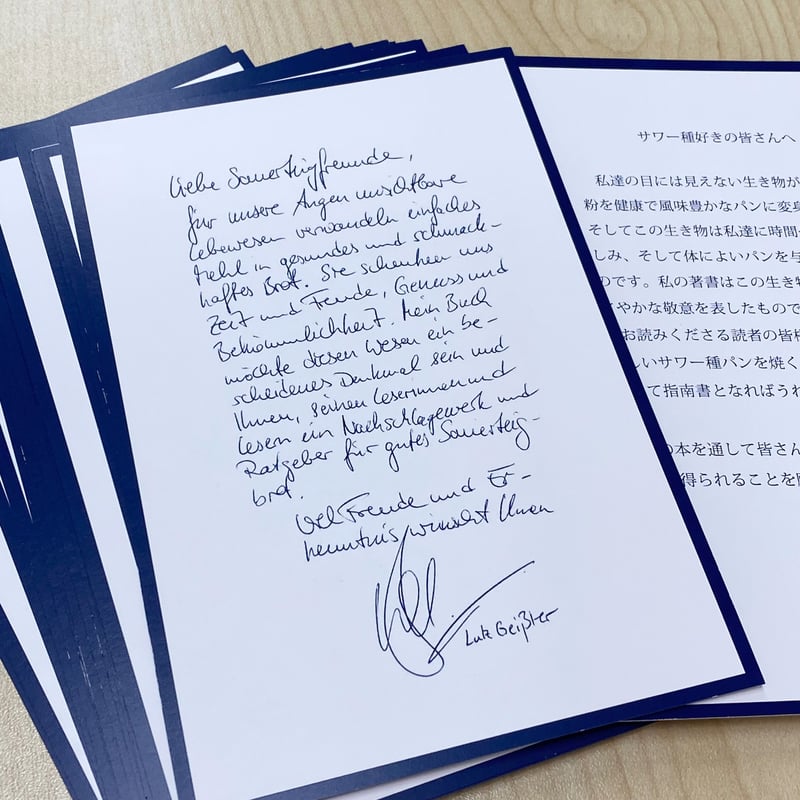 Liebe Sauerteigfreunde,
für unsere Augen unsichtbare
Lebewesen verwandeln einfaches
Mehl in gesundes und schmack-
haftes Brot. Sie schenken uns
Zeit und Freude, Genuss und
Bekömmlichkeit. Mein Buch
möchte diesen Wesen ein be-
scheidenes Denkmal sein und
Ihnen, seinen Leserinnen und
Lesern ein Nachschlagewerk und
Ratgeber für gutes Sauerteig-
brot.
Viel Freude und Er-
kenntnis wünscht Ihnen
Lutz Geißler
サワー種好きの皆さんへ
私達の目には見えない生き物が
粉を健康で風味豊かなパンに変身
そしてこの生き物は私達に時間
しみ、そして体によいパンを与
のです。私の著書はこの生き物
やかな敬意を表したもので
お読みくださる読者の皆様
いサワー種パンを焼く
て指南書となればうれ
の本を通して皆さん
得られることを